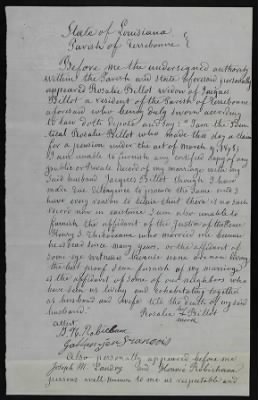 State of Louisiana
Parish of Terrebonne
Before me the undersigned authority
within the Parish and state aforesaid personally
appeared Rosalie Billot widow of Jacques
Billot a resident of the Parish of Terrebonne
aforesaid who being duly sworn according
to law doth depose and say: I am the Iden
tical Rosalie Billot who made this day a claim
for a pension under the act of March 9, 1878;
I am unable to furnish any certified copy of any
public or private record of my marriage with my
said husband Jacques Billot though I have
made due diligence to procure the same and I
have every reason to believe that there is no such
record now in existence I am also unable to
furnish the affidavit of the Justice of the Peace
Henry J. Thibodaux who married me because
he is dead since many years, or the affidavit of
some eye witness because none are now living
the best proof I can furnish of my marriage
is the affidavit of some of our neighbors who
have seen us living and cohabitating together
as husband and wife till the death of my said
husband. Rosalie X Billot
mark
attest
François
Also personally appeared before me
Joseph M. Landry and Honoré Robichaux
persons well known to me as respectable and